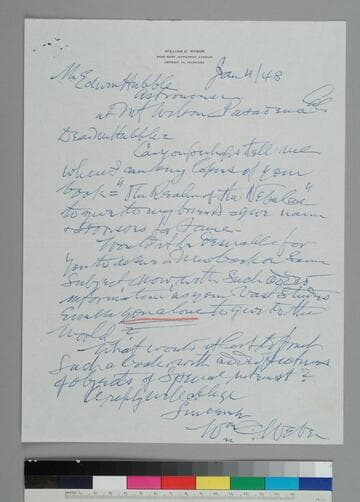 WILLIAM C. WEBER
JEFFERSON AVENUE
DETROIT 14, MICHIGAN
Jan 4/48
Mr Edwin Hubble
Astronomer
at Mt Wilson Pasadena Cal
Dear Mr Hubble
Can you perhaps tell me
where I can buy copies of your
book = "The Realm of the Nebulae"
to give to my friends = give name
& for same
Wouldn't it be desirable for
you to issue a new book on same
subject now, with such added
information as your vast studies
enable you alone to give to the
World?
What would it cost to print
such a book with added pictures
of objects of special interest?
A reply will oblige
Sincerely
Wm C. Weber